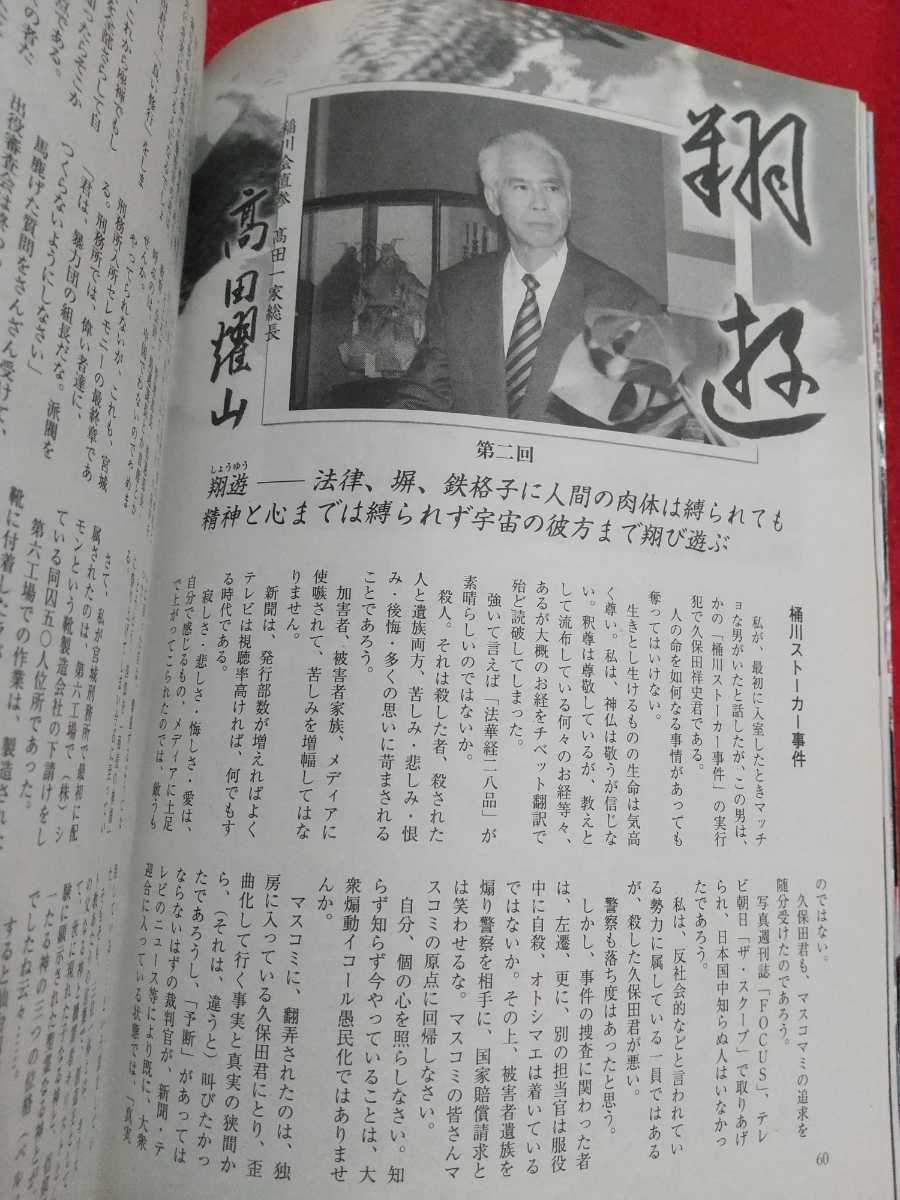 翔遊
稲川会直参　髙田一家総長
髙田燿山
第二回
しょうゆう
翔遊――法律、塀、鉄格子に人間の肉体は縛られても
精神と心までは縛られず宇宙の彼方まで翔び遊ぶ
桶川ストーカー事件
私が、最初に入室したときマッチ
ョな男がいたと話したが、この男は、
かの「桶川ストーカー事件」の実行
犯で久保田祥史君である。
人の命を如何なる事情があっても
奪ってはいけない。
生きとし生けるものの生命は気高
く尊い。私は、神仏は敬うが信じな
い。釈尊は尊敬しているが、教えと
して流布している何々のお経等々、
あるが大概のお経をチベット翻訳で
殆ど読破してしまった。
強いて言えば「法華経二八品」が
素晴らしいのではないか。
殺人。それは殺した者、殺された
人と遺族両方、苦しみ・悲しみ・恨
み・後悔・多くの思いに苛まされる
ことであろう。
加害者、被害者家族、メディアに
使嗾されて、苦しみを増幅してはな
りません。
新聞は、発行部数が増えればよく
テレビは視聴率高ければ、何でもす
る時代である。
寂しさ・悲しさ・悔しさ・愛は、
自分で感じるもの、メディアに土足
で上がってこられたのでは、敵うも
のではない。
久保田君も、マスコマミの追求を
随分受けたのであろう。
写真週刊誌「FOCUS」、テレ
ビ朝日「ザ・スクープ」で取りあげ
られ、日本国中知らぬ人はいなかっ
たであろう。
私は、反社会的などと言われてい
る勢力に属している一員ではある
が、殺した久保田君が悪い。
警察も落ち度はあったと思う。
しかし、事件の捜査に関わった者
は、左遷、更に、別の担当官は服役
中に自殺、オトシマエは着いている
ではないか。その上、被害者遺族を
煽り警察を相手に、国家賠償請求と
は笑わせるな。マスコミの皆さんマ
スコミの原点に回帰しなさい。
自分、個の心を照らしなさい。知
らず知らず今やっていることは、大
衆煽動イコール愚民化ではありませ
んか。
マスコミに、翻弄されたのは、独
房に入っている久保田君にとり、歪
曲化して行く事実と真実の狭間か
ら、（それは、違うと）叫びたかっ
たであろうし、「予断」があっては
ならないはずの裁判官が、新聞・テ
レビのニュース等により既に、大衆
迎合に入っている状態では、「真実
60
これから極禅でもし
である。
刑務所入所セレモニーの最終章であ
る。刑務所では、偉い者達に、
「君は、暴力団の組長だな。派閥を
つくらないようにしなさい」
馬鹿げた質問をさんざん受けて、
やってられないが、これも、宮城
さて、私が宮城刑務所で、最初に配
属されたのは、第六工場で（株）シ
モンという靴製造会社の下請けをし
ている同囚五〇人位所であった。
第六工場での作業は、製造された